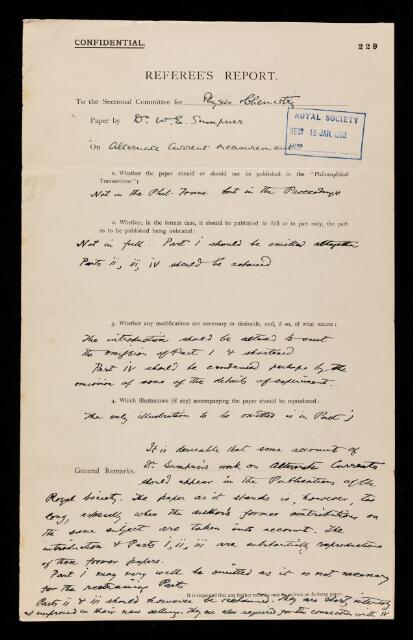 CONFIDENTIAL.
229
REFEREE'S REPORT.
To the Sectional Committee for Physics Chemistry
Paper by Dr. W. E. Sumpner
On Alternate Current Measurement
ROYAL SOCIETY
REC? 15 JAN. 1903
1. Whether the paper should or should not be published in the "Philosophical
Transactions":
Not in the Phil. Trans. but in the Proceedings
2. Whether, in the former case, it should be published in full or in part only, the part
so to be published being indicated:
Not in full. Part i should be omitted altogether
Parts ii, iii, iv should be retained
3. Whether any modifications are necessary or desirable, and, if so, of what nature:
The introduction should be altered to suit
the omission of Part 1 & shortened
Part iv should be condensed perhaps by the
omission of some of the details of experiment.
4. Which illustrations (if any) accompanying the paper should be reproduced:
The only illustration to be omitted is in Part i
It is desirable that some account of
General Remarks. Dr. Sumpner's work on Alternate Currents
should appear in the Publications of the
Royal Society. The paper as it stands is, however, too
long, especially when the author's former contributions on
the same subject are taken into account. The
introduction & Parts i, ii, iii are substantially reproductions
of those former papers.
Part i may very well be omitted as it is not necessary
for the remaining Part
It is requested that any further remarks may be written on
Parts ii & iii should however be retained. They are short, interesting
& improved in their new setting. They are also required for the connection with iv